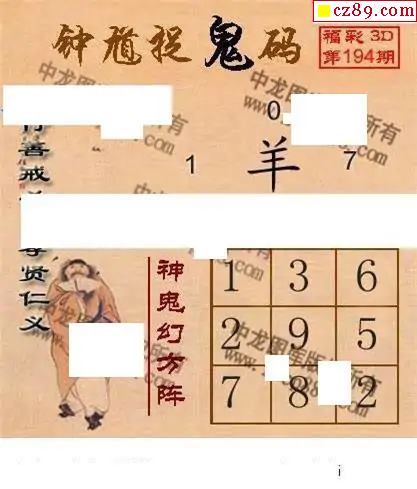 cz89.com
钟馗捉鬼码
福彩3D
第194期
中龙图库版权所有
0
1 羊 7
善戒
贤仁义
神鬼幻方阵
1 3 6
2 9 5
7 8 2
中龙图库版权所有
i